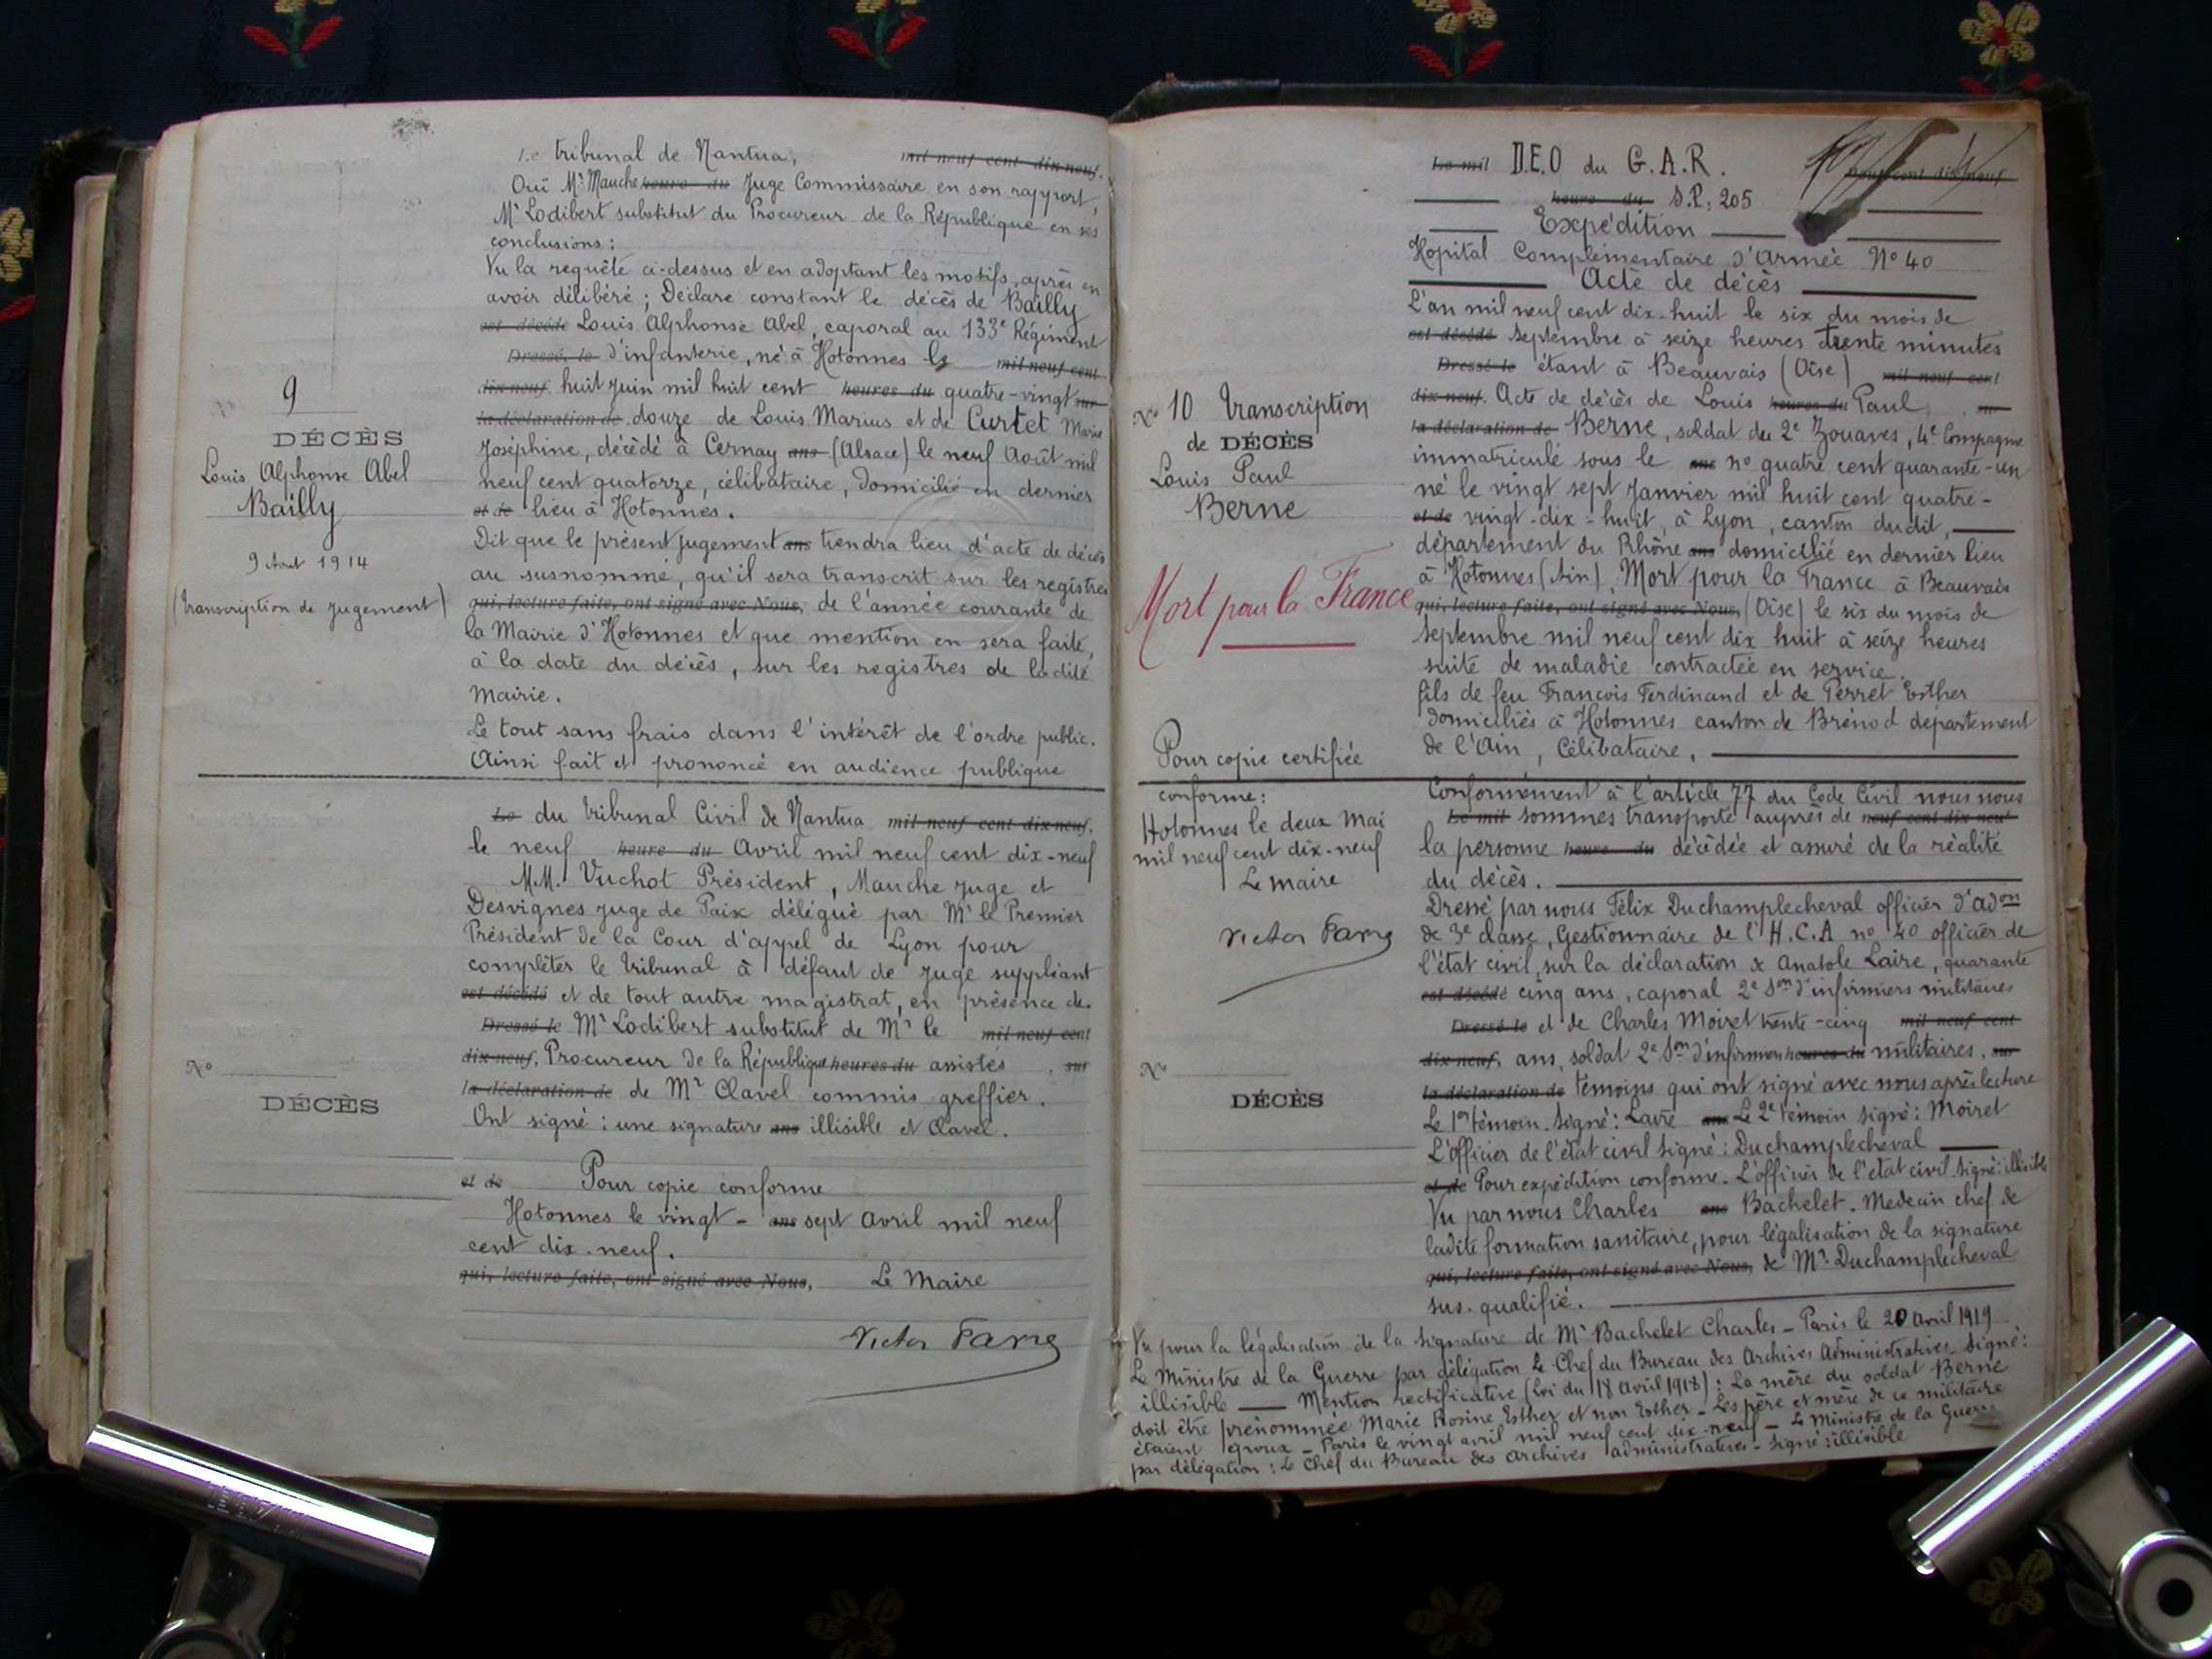 Le tribunal de Nantua, mil neuf cent dix-neuf.
Ouï Mr Mauche heure du Juge Commissaire en son rapport,
Mr Lodibert substitut du Procureur de la République en ses
conclusions :
Vu la requête ci-dessus et en adoptant les motifs, après en
avoir délibéré ; Déclare constant le décès de Bailly
est décédé Louis Alphonse Abel, caporal au 133e Régiment
Dressé le d'infanterie, né à Hotonnes le mil neuf cent
dix-neuf. huit Juin mil huit cent heures du quatre-vingt sur
la déclaration de douze de Louis Marius et de Curtet Marie
Joséphine, décédé à Cernay ans (Alsace) le neuf Août mil
neuf cent quatorze, célibataire, domicilié en dernier
et de lieu à Hotonnes.
Dit que le présent jugement ans tiendra lieu d'acte de décès
au susnommé, qu'il sera transcrit sur les registres
qui, lecture faite, ont signé avec Nous, de l'année courante de
la Mairie d'Hotonnes et que mention en sera faite,
à la date du décès, sur les registres de ladite
Mairie.
Le tout sans frais dans l'intérêt de l'ordre public.
Ainsi fait et prononcé en audience publique
9
DÉCÈS
Louis Alphonse Abel
Bailly
9 Août 1914
(Transcription de jugement)
Le du Tribunal Civil de Nantua mil neuf cent dix-neuf.
le neuf heure du Avril mil neuf cent dix-neuf
M.M. Vuchot Président, Mauche juge et
Desvignes juge de Paix délégué par Mr le Premier
Président de la Cour d'appel de Lyon pour
compléter le Tribunal à défaut de juge suppléant
est décédé et de tout autre magistrat, en présence de
Dressé le Mr Lodibert substitut de Mr le mil neuf cent
dix-neuf, Procureur de la République heures du assistés , sur
la déclaration de de Mr Clavel commis greffier.
Ont signé : une signature ans illisible et Clavel.
et de Pour copie conforme
Hotonnes le vingt- ans sept Avril mil neuf
cent dix-neuf.
qui, lecture faite, ont signé avec Nous, Le Maire
Victor Favre
No
DÉCÈS
Le mil D.E.O du G.A.R. neuf cent dix-neuf
heure du S.P. 205
Expédition
Hopital Complémentaire d'Armée No 40
Acte de décès
L'an mil neuf cent dix-huit le six du mois de
est décédé Septembre à seize heures trente minutes
Dressé le étant à Beauvais (Oise) mil neuf cent
dix-neuf. Acte de décès de Louis heures du Paul, sur
la déclaration de Berne, soldat du 2e Zouaves, 4e Compagnie
immatriculé sous le ans no quatre cent quarante-un
né le vingt sept Janvier mil huit cent quatre-
et de vingt-dix-huit, à Lyon, canton dudit,
département du Rhône ans domicilié en dernier lieu
à Hotonnes (Ain). Mort pour la France à Beauvais
qui, lecture faite, ont signé avec Nous, (Oise) le six du mois de
Septembre mil neuf cent dix huit à seize heures
suite de maladie contractée en service.
fils de feu François Ferdinand et de Perret Esther
domiciliés à Hotonnes canton de Brénod département
de l'Ain, Célibataire.
No 10 Transcription
de DÉCÈS
Louis Paul
Berne
Mort pour la France
Pour copie certifiée
conforme :
Hotonnes le deux Mai
mil neuf cent dix-neuf
Le maire
Victor Favre
Conformément à l'article 77 du Code Civil nous nous
Le mil sommes transporté auprès de neuf cent dix-neuf
la personne heure du décédée et assuré de la réalité
du décès.
Dressé par nous Félix Duchamplecheval officier d'adon
de 3e classe, Gestionnaire de l'H.C.A no 40 officier de
l'état civil, sur la déclaration x Anatole Laire, quarante
est décédé cinq ans, caporal 2e Son d'infirmiers militaires
Dressé le et de Charles Moiret trente-cinq mil neuf cent
dix-neuf, ans, soldat 2e Son d'infirmiers heures du militaires, sur
la déclaration de témoins qui ont signé avec nous après lecture
Le 1er témoin. Signé : Laire ans Le 2e témoin signé : Moiret
L'officier de l'état civil signé : Duchamplecheval
et de Pour expédition conforme. L'officier de l'état civil signé : illisible
Vu par nous Charles ans Bachelet. Medecin chef de
ladite formation sanitaire, pour légalisation de la signature
qui, lecture faite, ont signé avec Nous, de Mr Duchamplecheval
sus-qualifié.
Vu pour la légalisation de la signature de Mr Bachelet Charles - Paris le 20 Avril 1919
Le Ministre de la Guerre par délégation Le Chef du Bureau des Archives Administratives signé :
illisible — Mention rectificative (Loi du 18 Avril 1918) : La mère du soldat Berne
doit être prénommée Marie Rosine Esther et non Esther - Les père et mère de ce militaire
étaient époux - Paris le vingt avril mil neuf cent dix-neuf - Le Ministre de la Guerre
par délégation : Le Chef du Bureau des Archives administratives - Signé : illisible
No
DÉCÈS